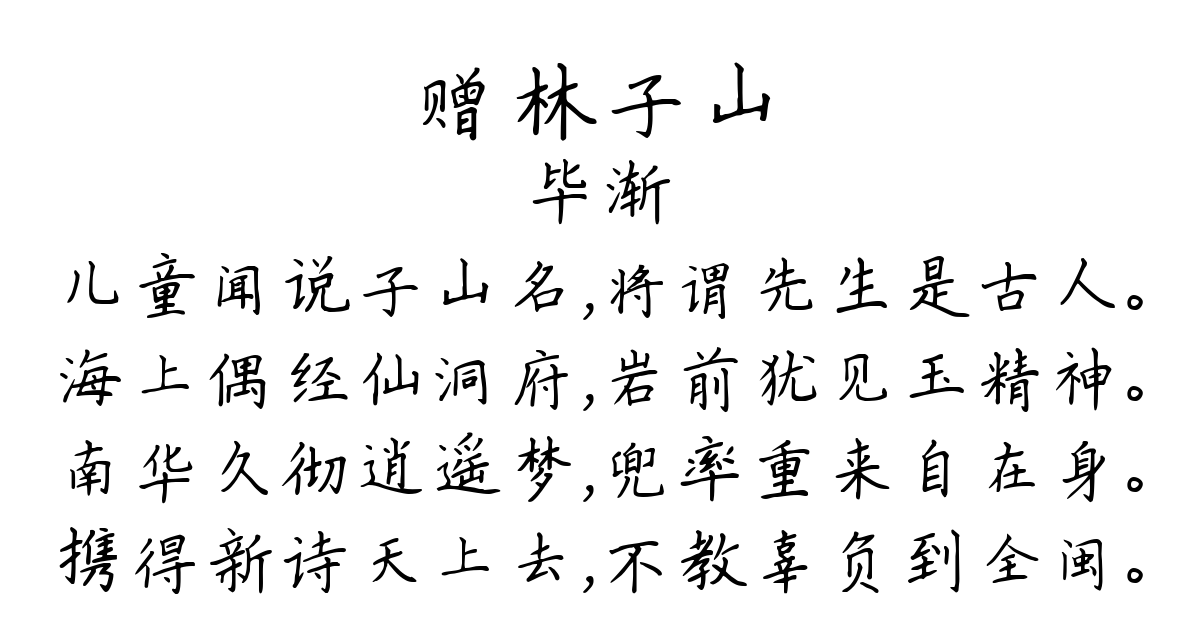 赠林子山
毕渐
儿童闻说子山名,将谓先生是古人。
海上偶经仙洞府,岩前犹见玉精神。
南华久彻逍遥梦,兜率重来自在身。
携得新诗天上去,不教辜负到全闽。